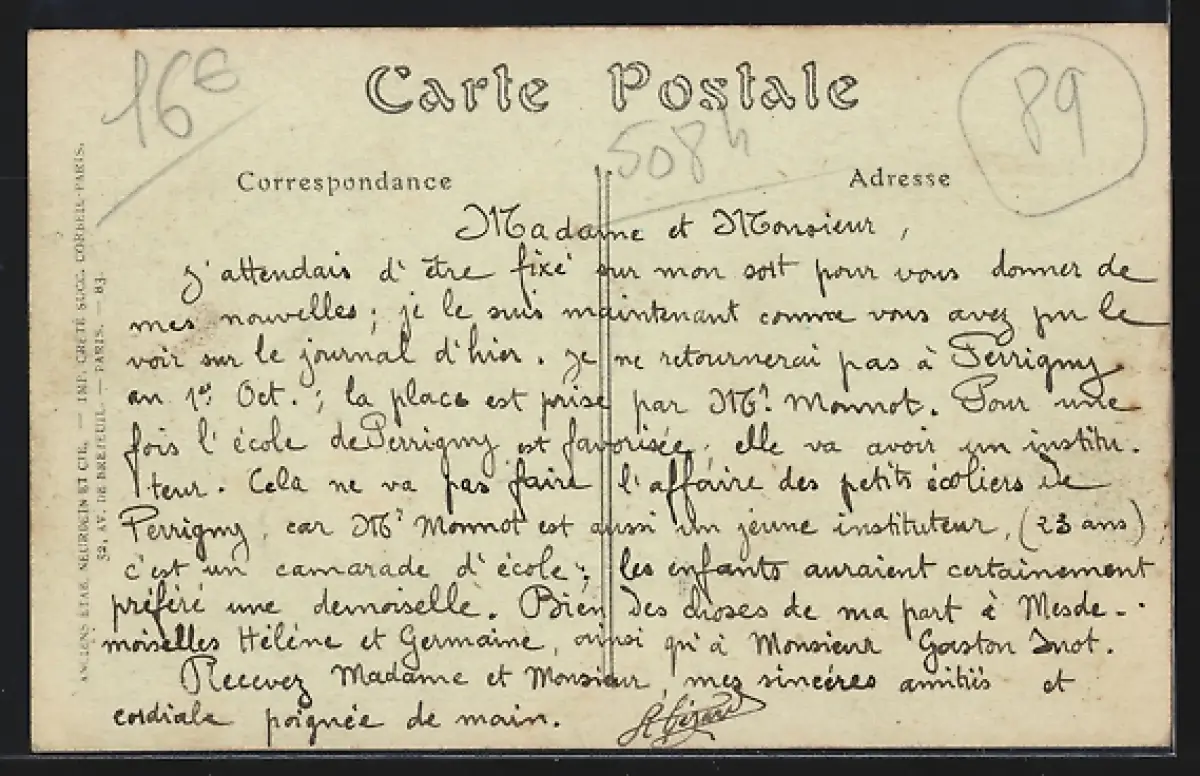 16€
Carte Postale
89
508h
Correspondance
Adresse
Madame et Monsieur,
J'attendais d'être fixé sur mon sort pour vous donner de
mes nouvelles ; je le suis maintenant comme vous avez pu le
voir sur le journal d'hier. Je ne retournerai pas à Perrigny
au 1er Oct. ; la place est prise par Mr. Monnot. Pour une
fois l'école de Perrigny est favorisée ; elle va avoir un institu-
teur. Cela ne va pas faire l'affaire des petits écoliers de
Perrigny, car Mr Monnot est aussi un jeune instituteur, (23 ans)
c'est un camarade d'école ; les enfants auraient certainement
préféré une demoiselle. Bien des choses de ma part à Mesde-
moiselles Héléne et Germaine, ainsi qu'à Monsieur Gaston
Recevez Madame et Monsieur, mes sincéres amitiés et
cordiale poignée de main.
ANCIENS ETAB. NEURDEIN ET CIE. — IMP. CRÉTÉ SUCC. CORBEIL-PARIS.
52, AV. DE BRETEUIL. — PARIS. — 83.